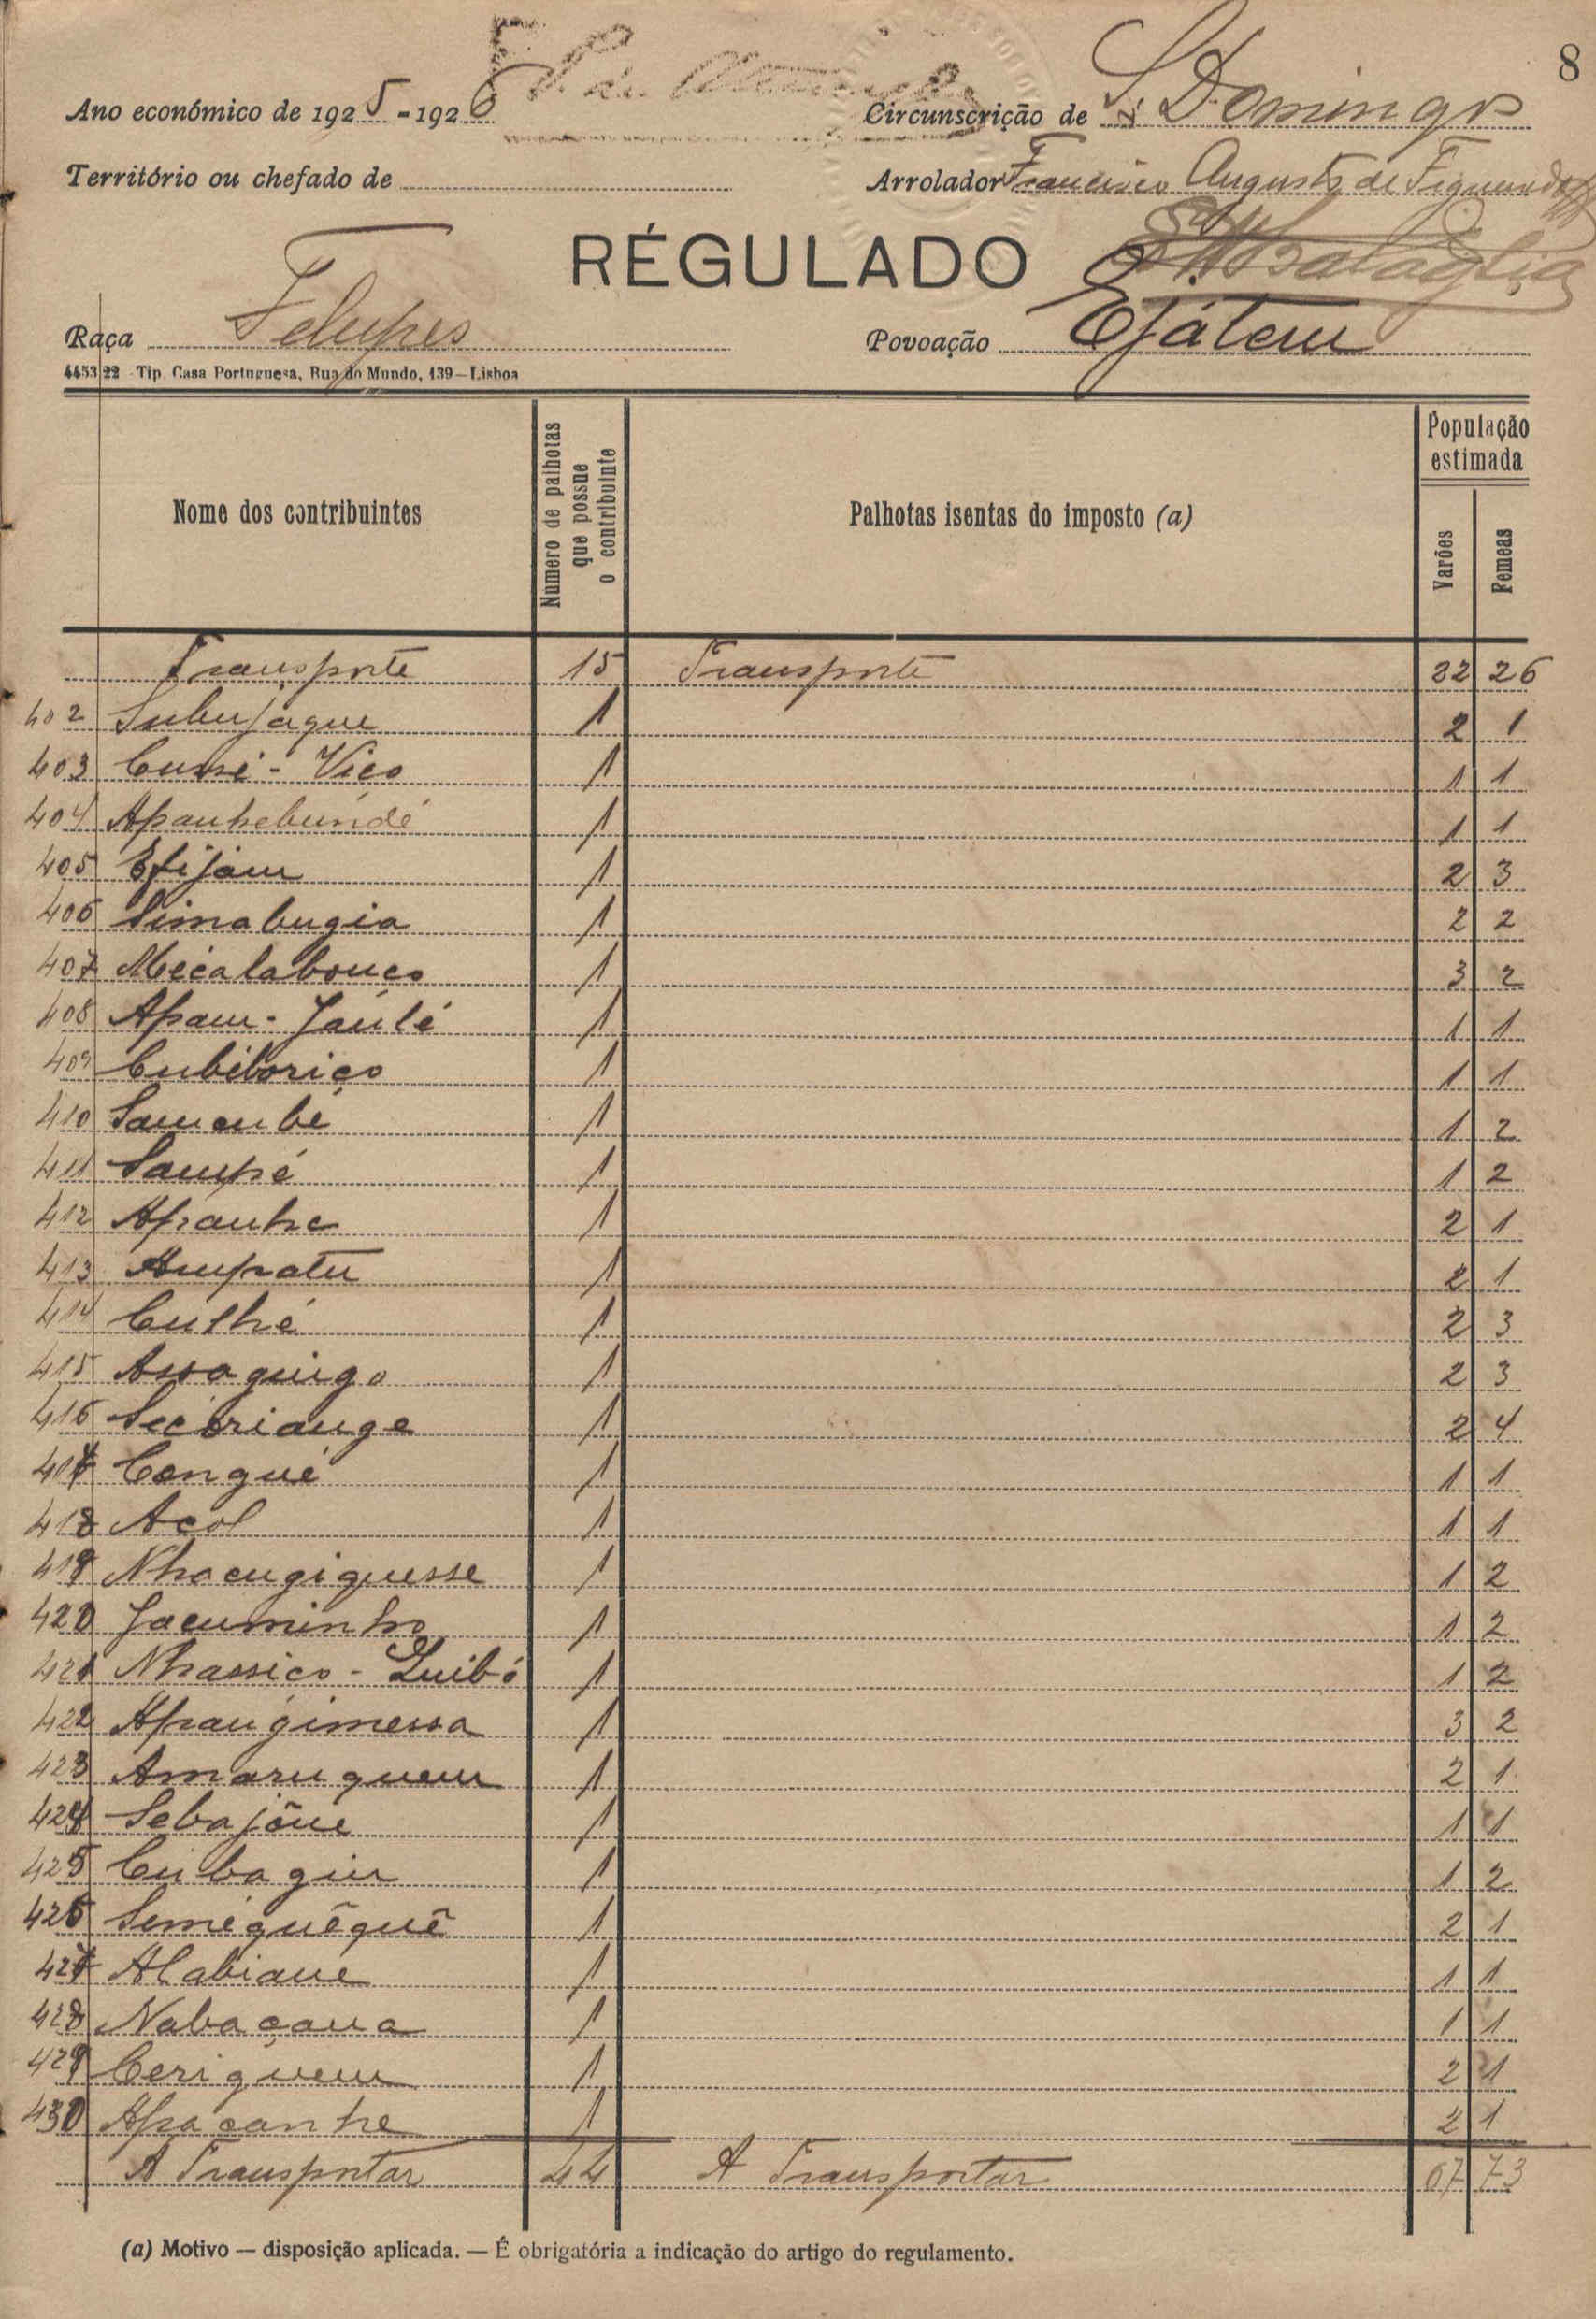 8
Ano económico de 1925-1926 Circunscrição de S. Domingos
Território ou chefado de Arrolador Francisco Augusto de Figueiredo
RÉGULADO
Raça Felupes Povoação Ejátem
445322 - Tip. Casa Portuguesa, Rua do Mundo, 139—Lisboa
Nome dos contribuintes Numero de palhotas que possue o contribuinte Palhotas isentas do imposto (a) População estimada Varões Femeas
Transporte 15 Transporte 22 26
402 Subujaque 1 2 1
403 Cussi - Vico 1 1 1
404 Apanhebundé 1 1 1
405 Efijam 1 2 3
406 Simabugia 1 2 2
407 Mécalabouco 1 3 2
408 Apam - Jaulé 1 1 1
409 Cubiborico 1 1 1
410 Samambé 1 1 2
411 Sampé 1 1 2
412 Apanhe 1 2 1
413 Ampatu 1 2 1
414 Culhé 1 2 3
415 Assaguigo 1 2 3
416 Secoriange 1 2 4
417 Congué 1 1 1
418 Acol 1 1 1
419 Nhacugiguesse 1 1 2
420 Jacuminho 1 1 2
421 Nhassico - Quibó 1 1 2
422 Apangimessa 1 3 2
423 Amaruguem 1 2 1
424 Sebajõue 1 1 1
425 Cubagiu 1 1 2
426 Seméguêquê 1 2 1
427 Alabiane 1 1 1
428 Nabaçaua 1 1 1
429 Ceriguem 1 2 1
430 Apacanhe 1 2 1
A Transportar 44 A Transportar 67 73
(a) Motivo — disposição aplicada. — É obrigatória a indicação do artigo do regulamento.